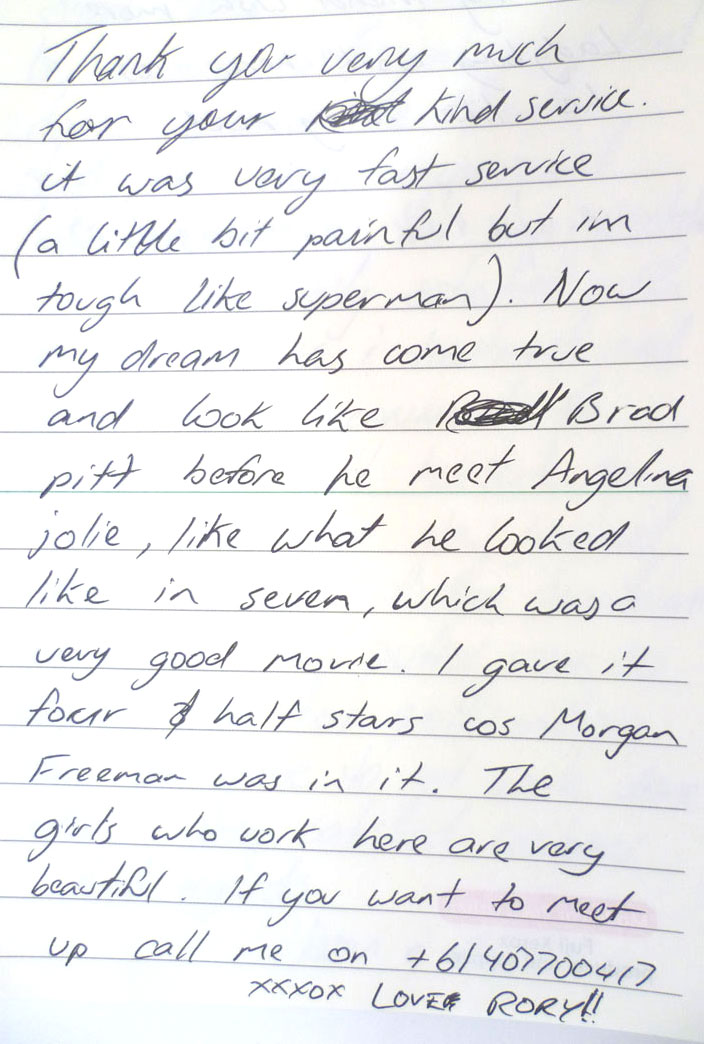 Thank you very much
for your kind service.
it was very fast service
(a little bit painful but im
tough like superman). Now
my dream has come true
and look like Brad
pitt before he meet Angelina
jolie, like what he looked
like in seven, which was a
very good movie. I gave it
four & half stars cos Morgan
Freeman was in it. The
girls who work here are very
beautiful. If you want to meet
up call me on +61407700417
xxxox LOVE RORY!!